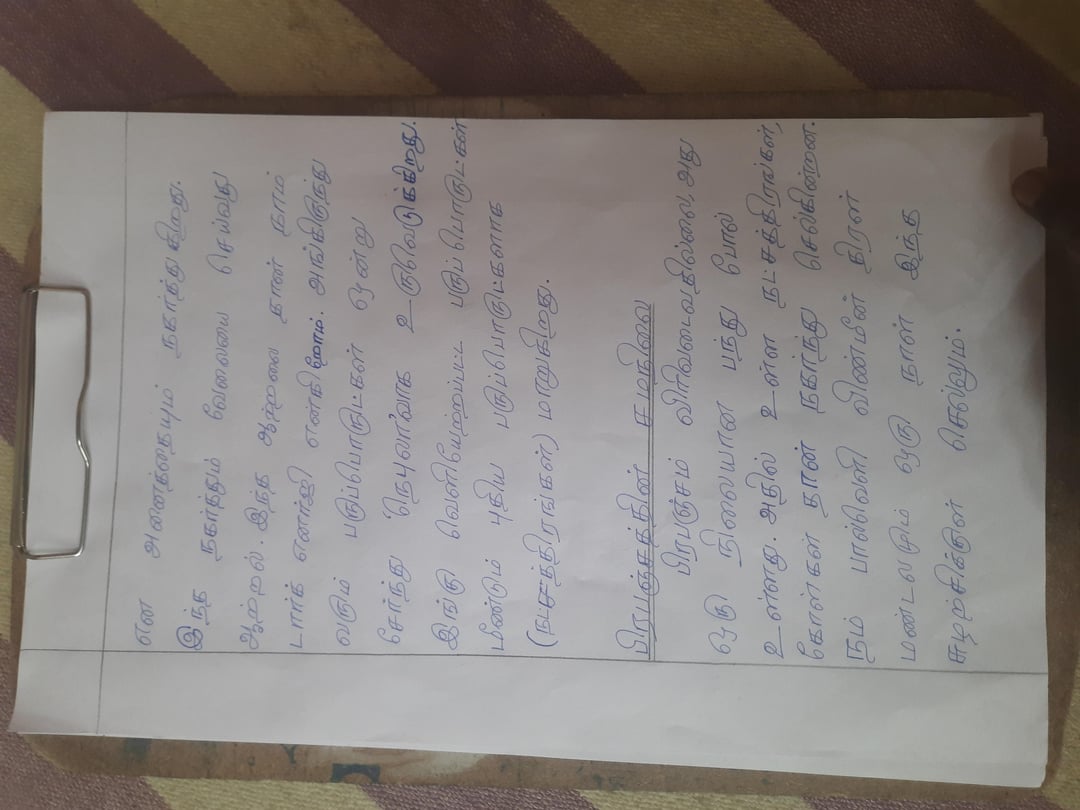 என அனைத்தையும் நகர்த்துகிறது.
இந்த நகர்த்தும் வேலையை செய்வது
ஆற்றல். இந்த ஆற்றலை தான் நாம்
டார்க் எனர்ஜி என்கிறோம். அங்கிருந்து
வரும் பருப்பொருட்கள் ஒன்று
சேர்ந்து 'நெபுலா'வாக உருவெடுக்கிறது.
இங்கு வெளியேற்றப்பட்ட பருப்பொருட்கள்
மீண்டும் புதிய பருப்பொருட்களாக
(நட்சத்திரங்கள்) மாறுகிறது.
பிரபஞ்சத்தின் சமநிலை
பிரபஞ்சம் விரிவடைவதில்லை, அது
ஒரு நிலையான பந்து போல்
உள்ளது. அதில் உள்ள நட்சத்திரங்கள்,
கோள்கள் தான் நகர்ந்து செல்கின்றன.
நம் பால்வெளி விண்மீன் திரள்
மண்டலமும் ஒரு நாள் இந்த
சுழற்சிக்குள் செல்லும்.